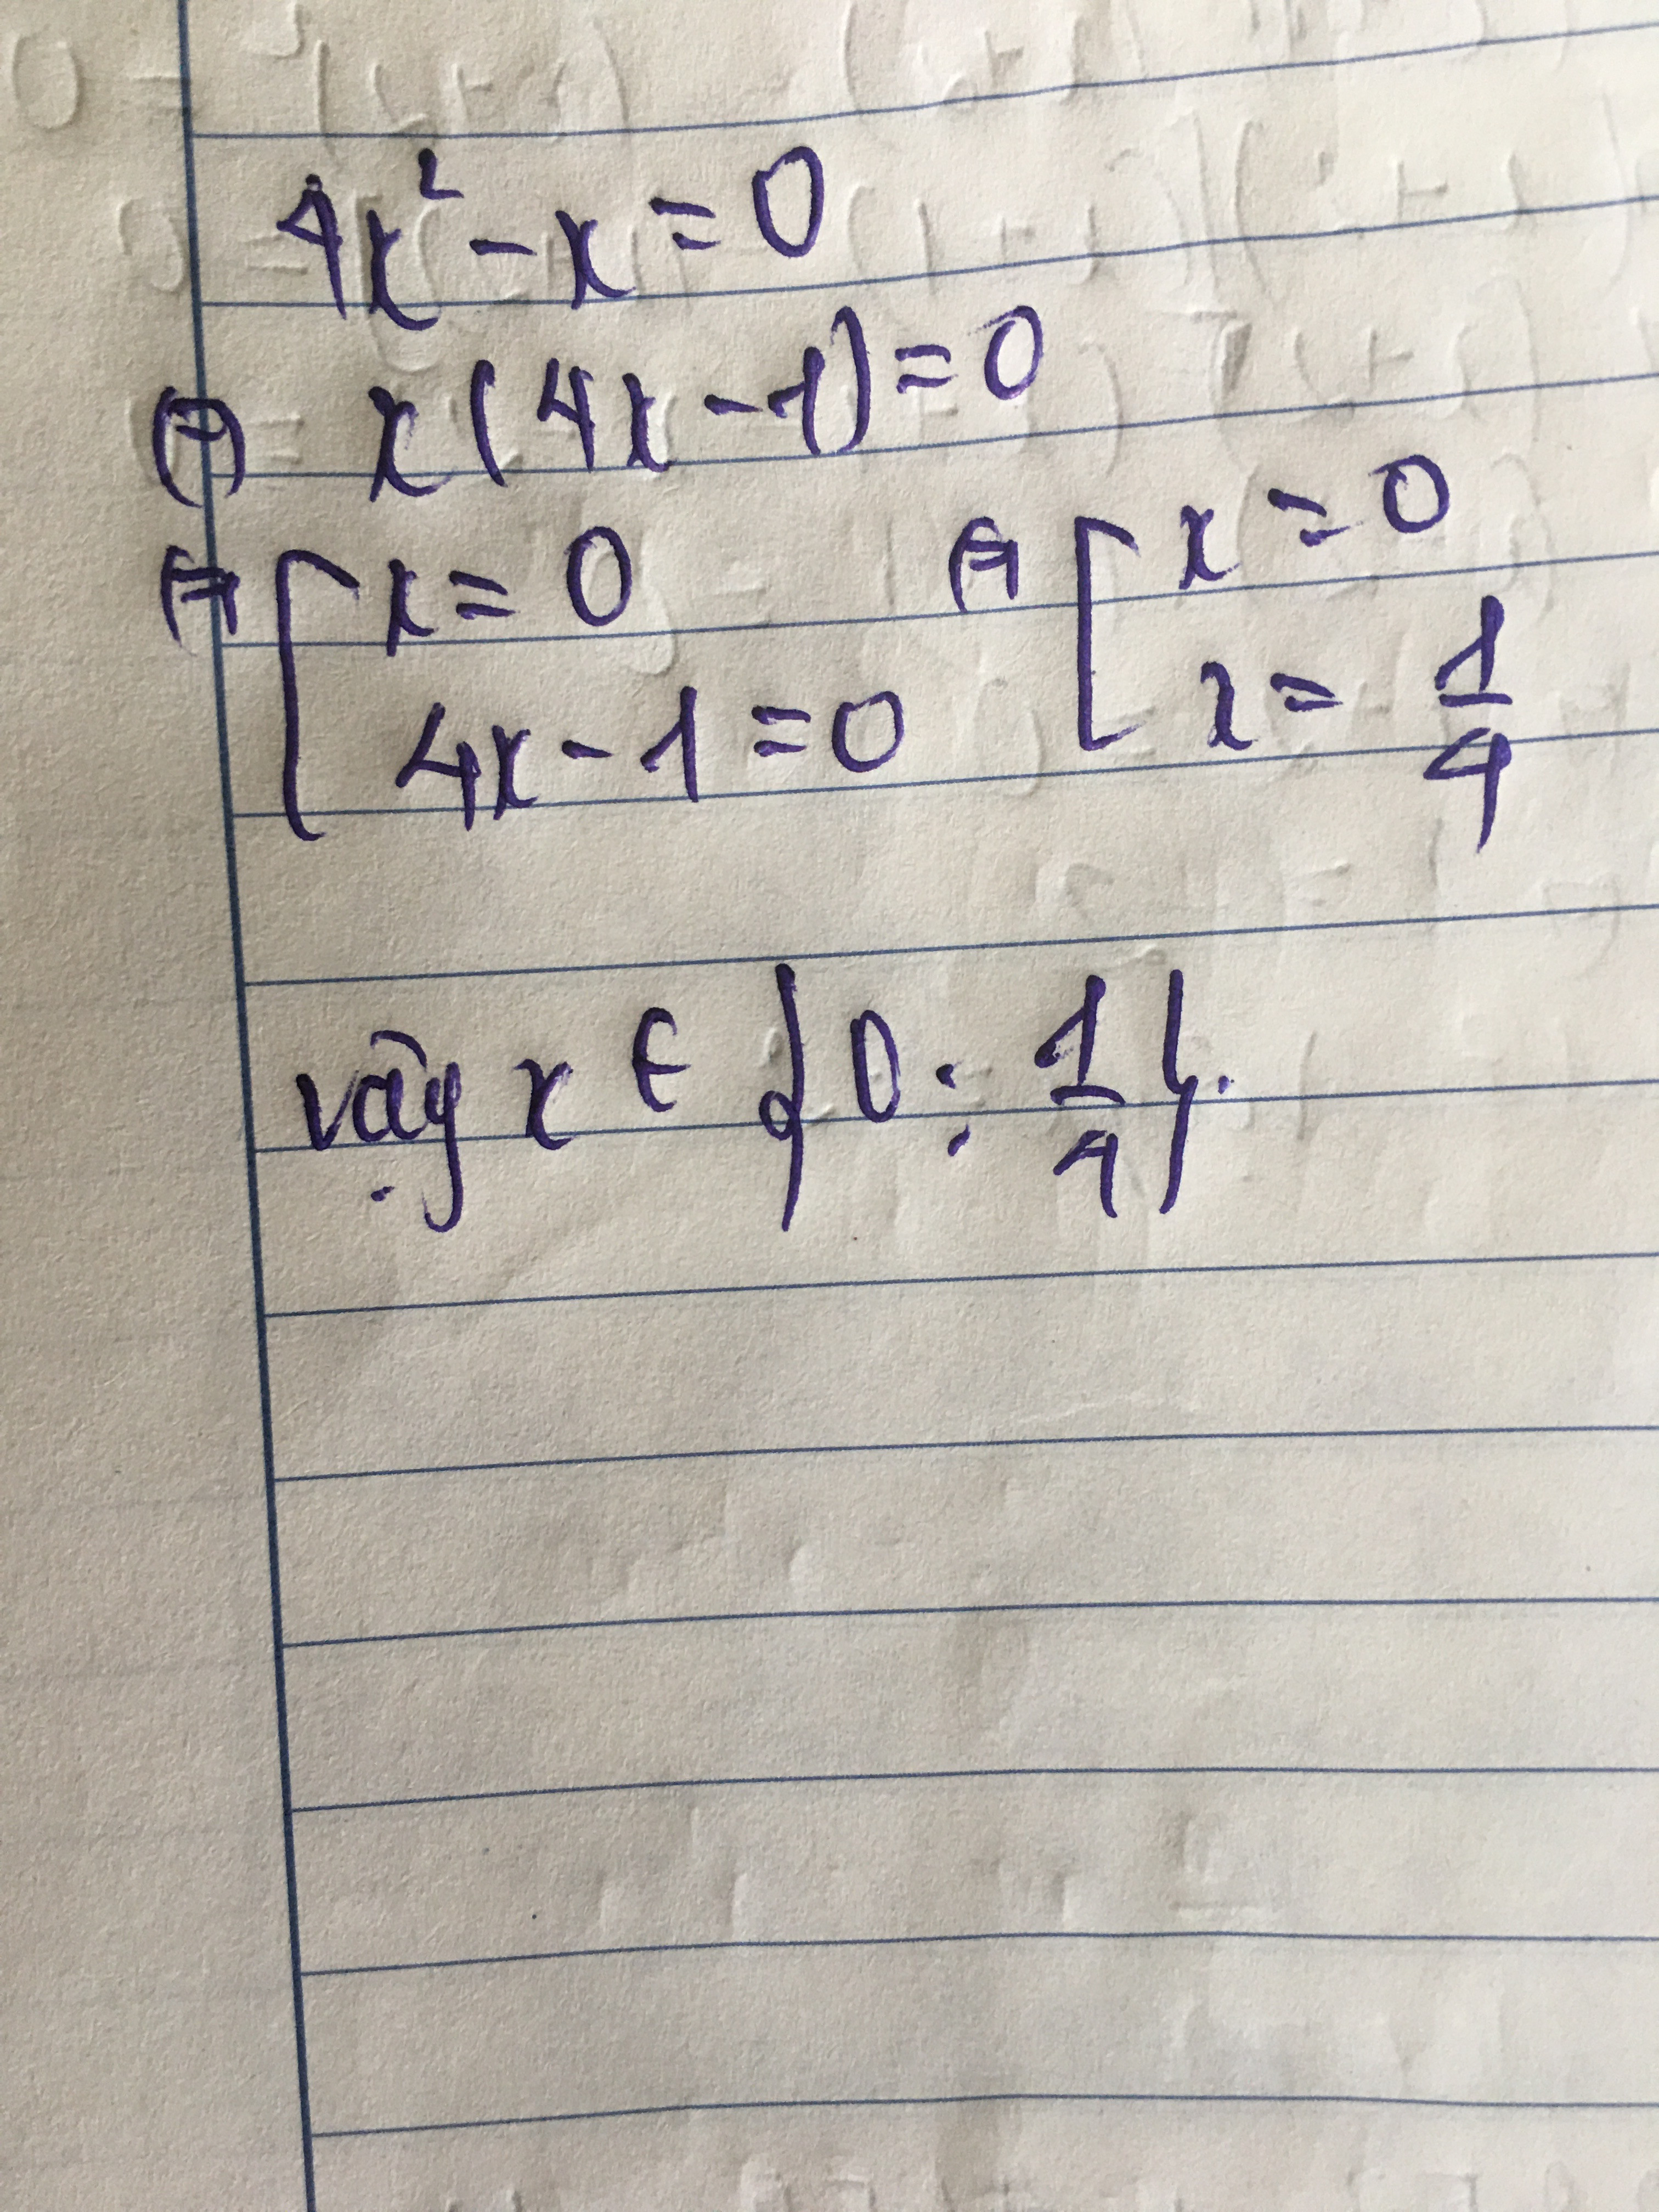 4x² - x = 0
⇔ x(4x - 1) = 0
⇔ [ x = 0 ⇔ [ x = 0
4x - 1 = 0 x = 1/4
vậy x ∈ {0; 1/4}.